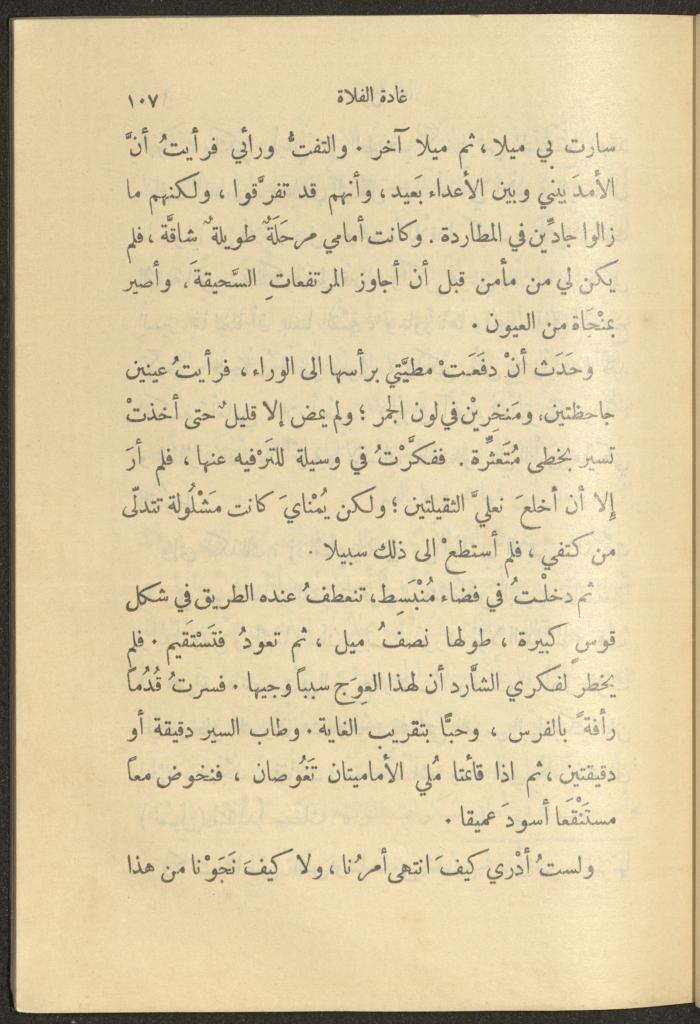 غادة الفلاة ١٠٧
سارت بي ميلا، ثم ميلا آخر . والتفتُّ ورائي فرأيتُ أنَّ
الأمدَ بيني وبين الأعداء بَعيد، وأنهم قد تفرَّقوا ، ولكنهم ما
زالوا جادِّين في المطاردة . وكانت أمامي مرحَلَةٌ طويلةٌ شاقَّة ، فلم
يكن لي من مأمن قبل أن أجاوز المرتفعاتِ السَّحيقةَ، وأصير
بمنْجَاة من العيون .
وحَدَث أنْ دفَعَتْ مطيَّتي برأسها الى الوراء ، فرأيتُ عينين
جاحظتين، ومَنخِريْن في لون الجمر ؛ ولم يمض إلا قليلٌ حتى أخذتْ
تسير بخطى مُتَعثِّرة . ففكَّرْتُ في وسيلة للتَرْفيه عنها ، فلم أرَ
إلا أن أخلعَ نعليَّ الثقيلتين ؛ ولكن يُمْنايَ كانت مَشْلُولة تتدلّى
من كتفي ، فلم أستطعْ الى ذلك سبيلا .
ثم دخلْتُ في فضاء مُنْبَسِط، تنعطفُ عنده الطريق في شكل
قوسٍ كبيرة ، طولها نصفُ ميل ، ثم تعودُ فتَسْتَقيم . فلم
يخطر لفكري الشاَّرد أن لهذا العِوَج سبباً وجيها . فسرتُ قُدُماً
رأفةً بالفرس ، وحبًّا بتقريب الغاية . وطاب السير دقيقة أو
دقيقتين ، ثم اذا قائمتا مُلي الأماميتان تَغُوصان ، فنخوض معاً
مستَنْقَعا أسودَ عميقا .
ولستُ أدْري كيفَ انتهى أمرُنا ، ولا كيفَ نَجَوْنا من هذا